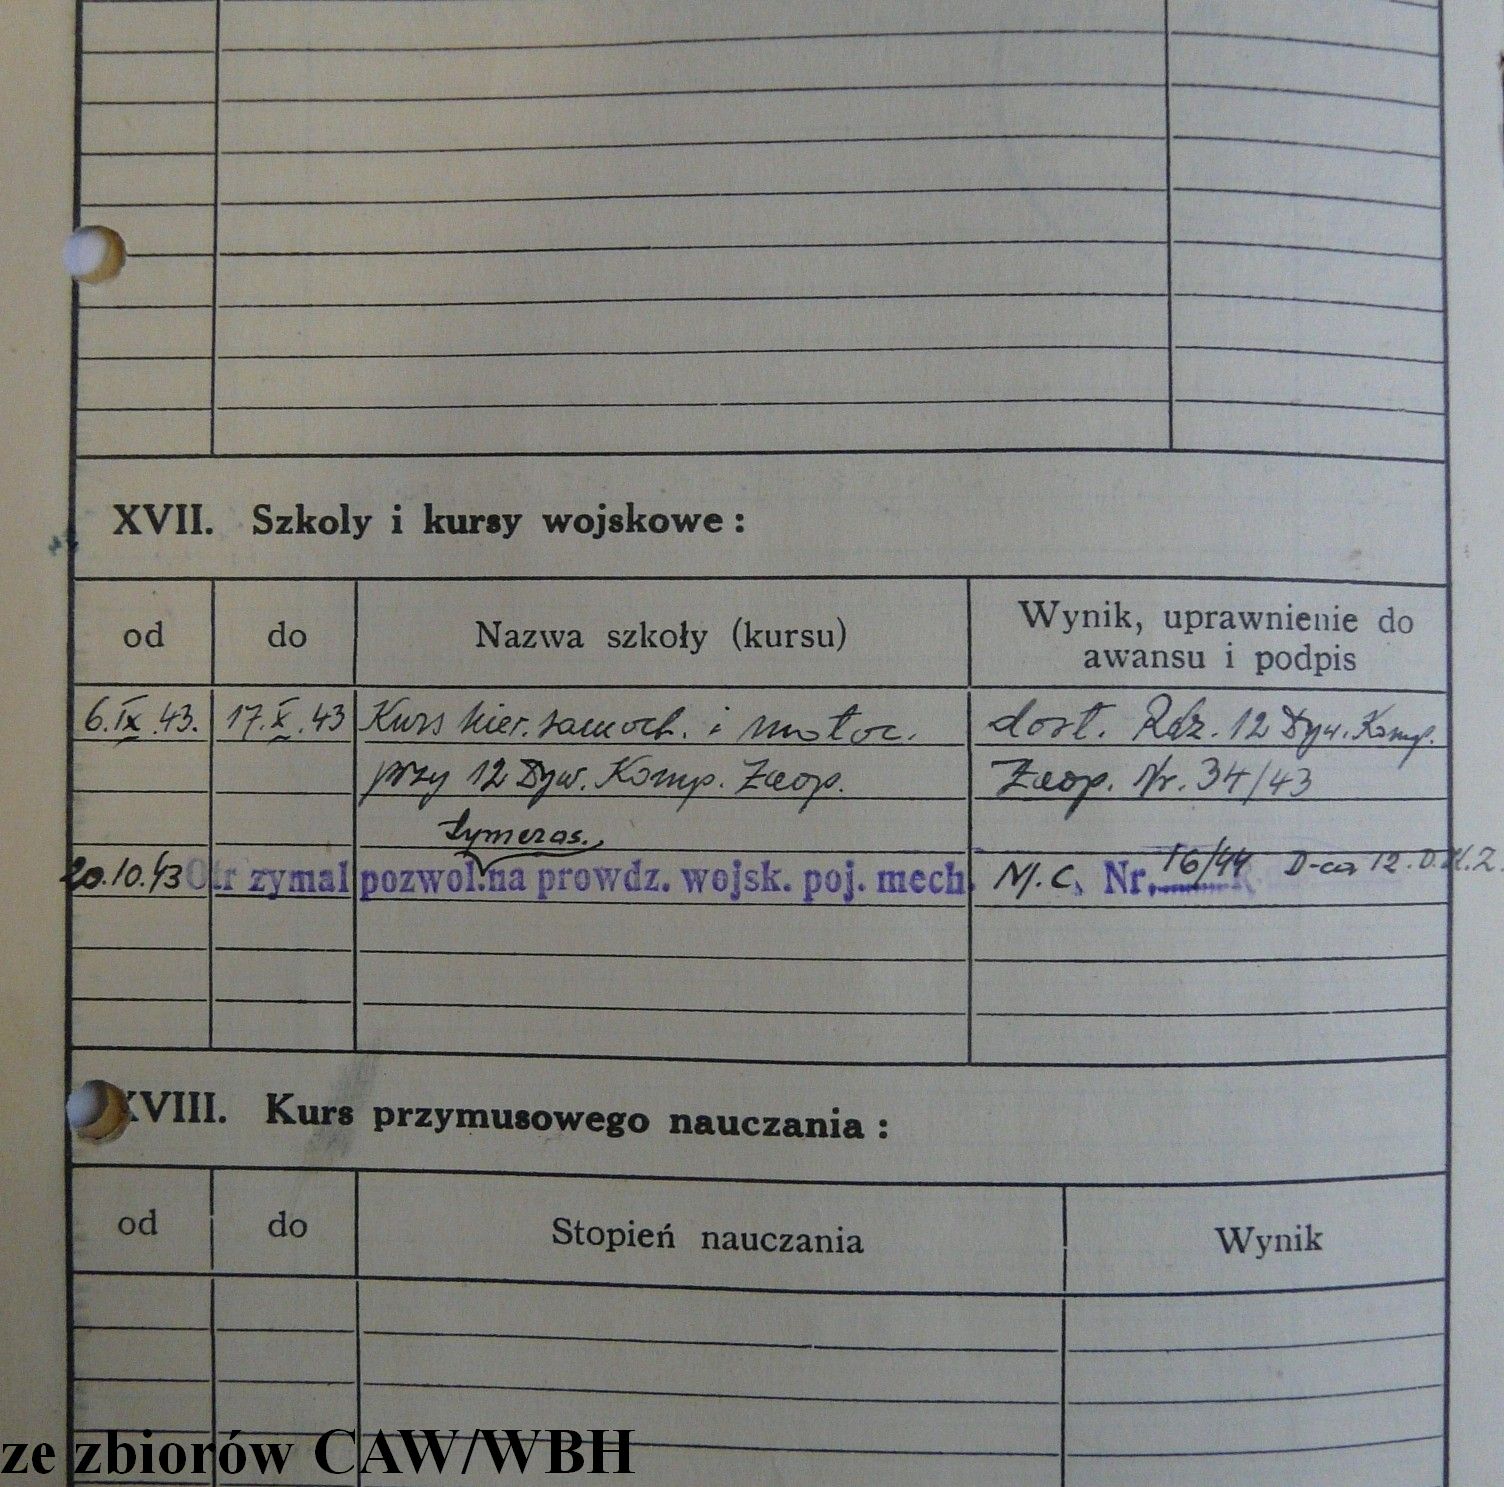 XVII. Szkoly i kursy wojskowe :
od do Nazwa szkoły (kursu) Wynik, uprawnienie do
awansu i podpis
6.IX.43. 17.X.43 Kurs kier. samoch. i motoc. dost. Rdz. 12 Dyw. Komp.
przy 12 Dyw. Komp. Zaop. Zaop. Nr. 34/43
tymczas.
20.10.43 Otrzymal pozwol. na prowdz. wojsk. poj. mech. M.C. Nr. 16/44 D-ca 12.D.K.Z.
XVIII. Kurs przymusowego nauczania :
od do Stopień nauczania Wynik
ze zbiorów CAW/WBH